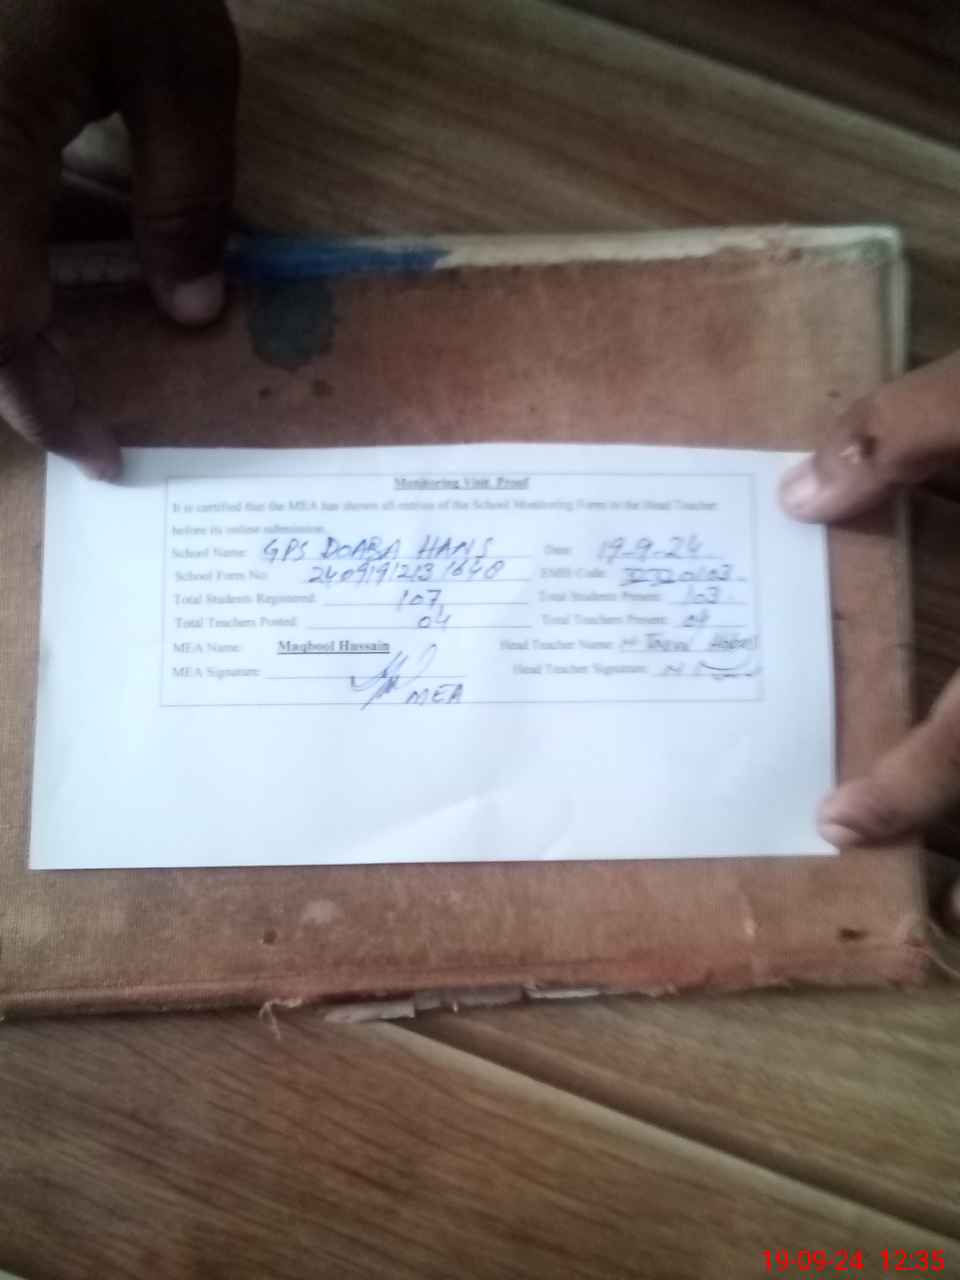 Monitoring Visit Proof
It is certified that the MEA has shown all entries of the School Monitoring Form to the Head Teacher
before its online submission.
School Name: GPS DOABA HANS Date: 19-9-24
School Form No: EMIS Code:
Total Students Registered: 107 Total Students Present: 103
Total Teachers Posted: 04 Total Teachers Present: 04
MEA Name: Maqbool Hussain Head Teacher Name: M.
MEA Signature: Head Teacher Signature:
MEA
19-09-24 12:35